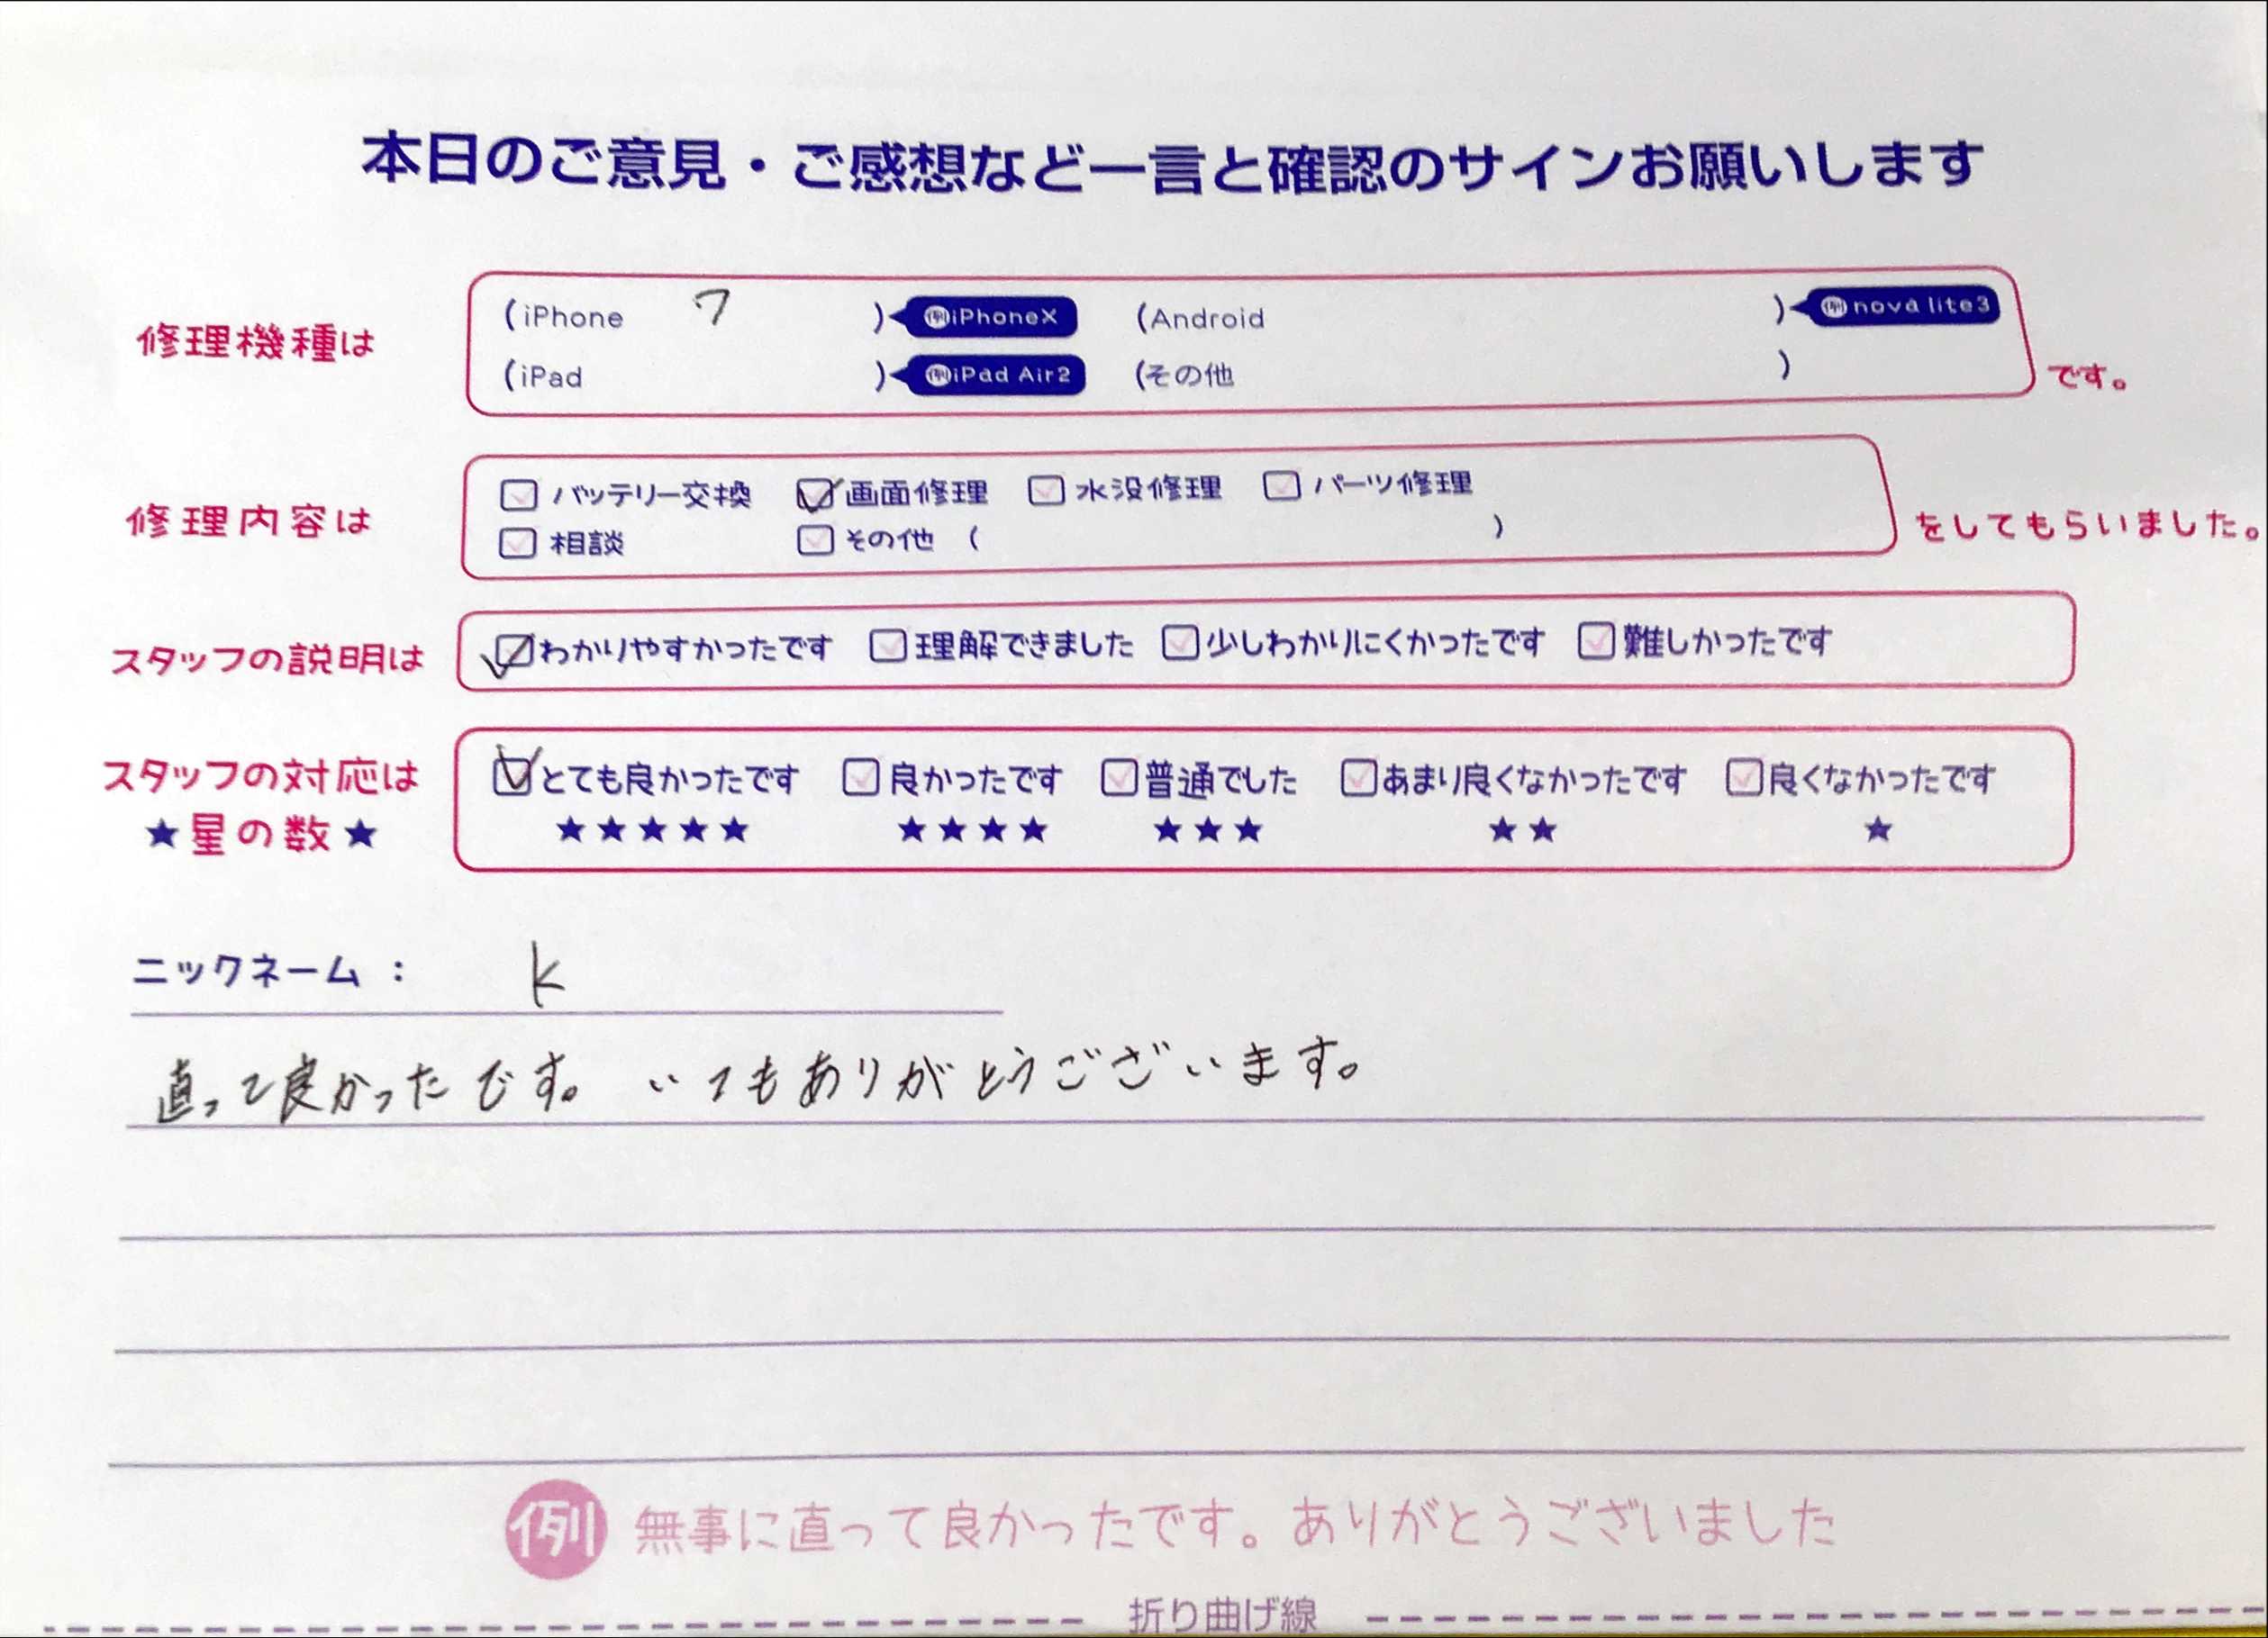 本日のご意見・ご感想など一言と確認のサインお願いします
修理機種は
(iPhone 7 ) 例iPhoneX (Android ) 例nova lite3
(iPad ) 例iPad Air2 (その他 ) です。
修理内容は
バッテリー交換 画面修理 水没修理 パーツ修理
相談 その他 ( ) をしてもらいました。
スタッフの説明は わかりやすかったです 理解できました 少しわかりにくかったです 難しかったです
スタッフの対応は とても良かったです 良かったです 普通でした あまり良くなかったです 良くなかったです
★星の数★ ★★★★★ ★★★★ ★★★ ★★ ★
ニックネーム： K
直って良かったです。いつもありがとうございます。
例 無事に直って良かったです。ありがとうございました
折り曲げ線